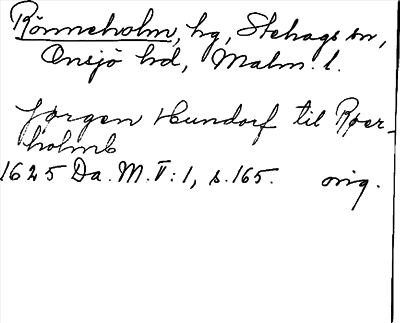 Rönneholm, hg, Stehags sn,
Onsjö hd, Malm. l.
Jørgen Hundorf til Røer-
holmb
1625 Da. M. V: 1, s. 165. orig.